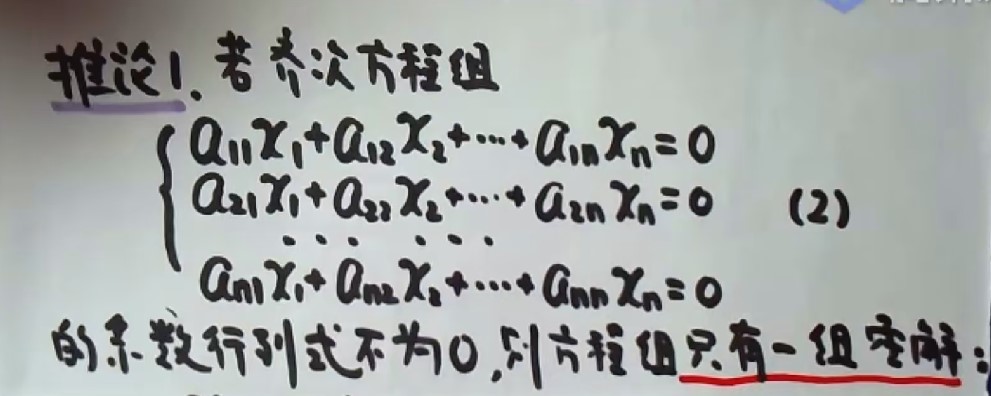 推论1.若齐次方程组
a₁₁x₁+a₁₂x₂+···+a₁ₙxₙ=0
a₂₁x₁+a₂₂x₂+···+a₂ₙxₙ=0 (2)
··· ···
aₙ₁x₁+aₙ₂x₂+···+aₙₙxₙ=0
的系数行列式不为0,则方程组只有一组零解: